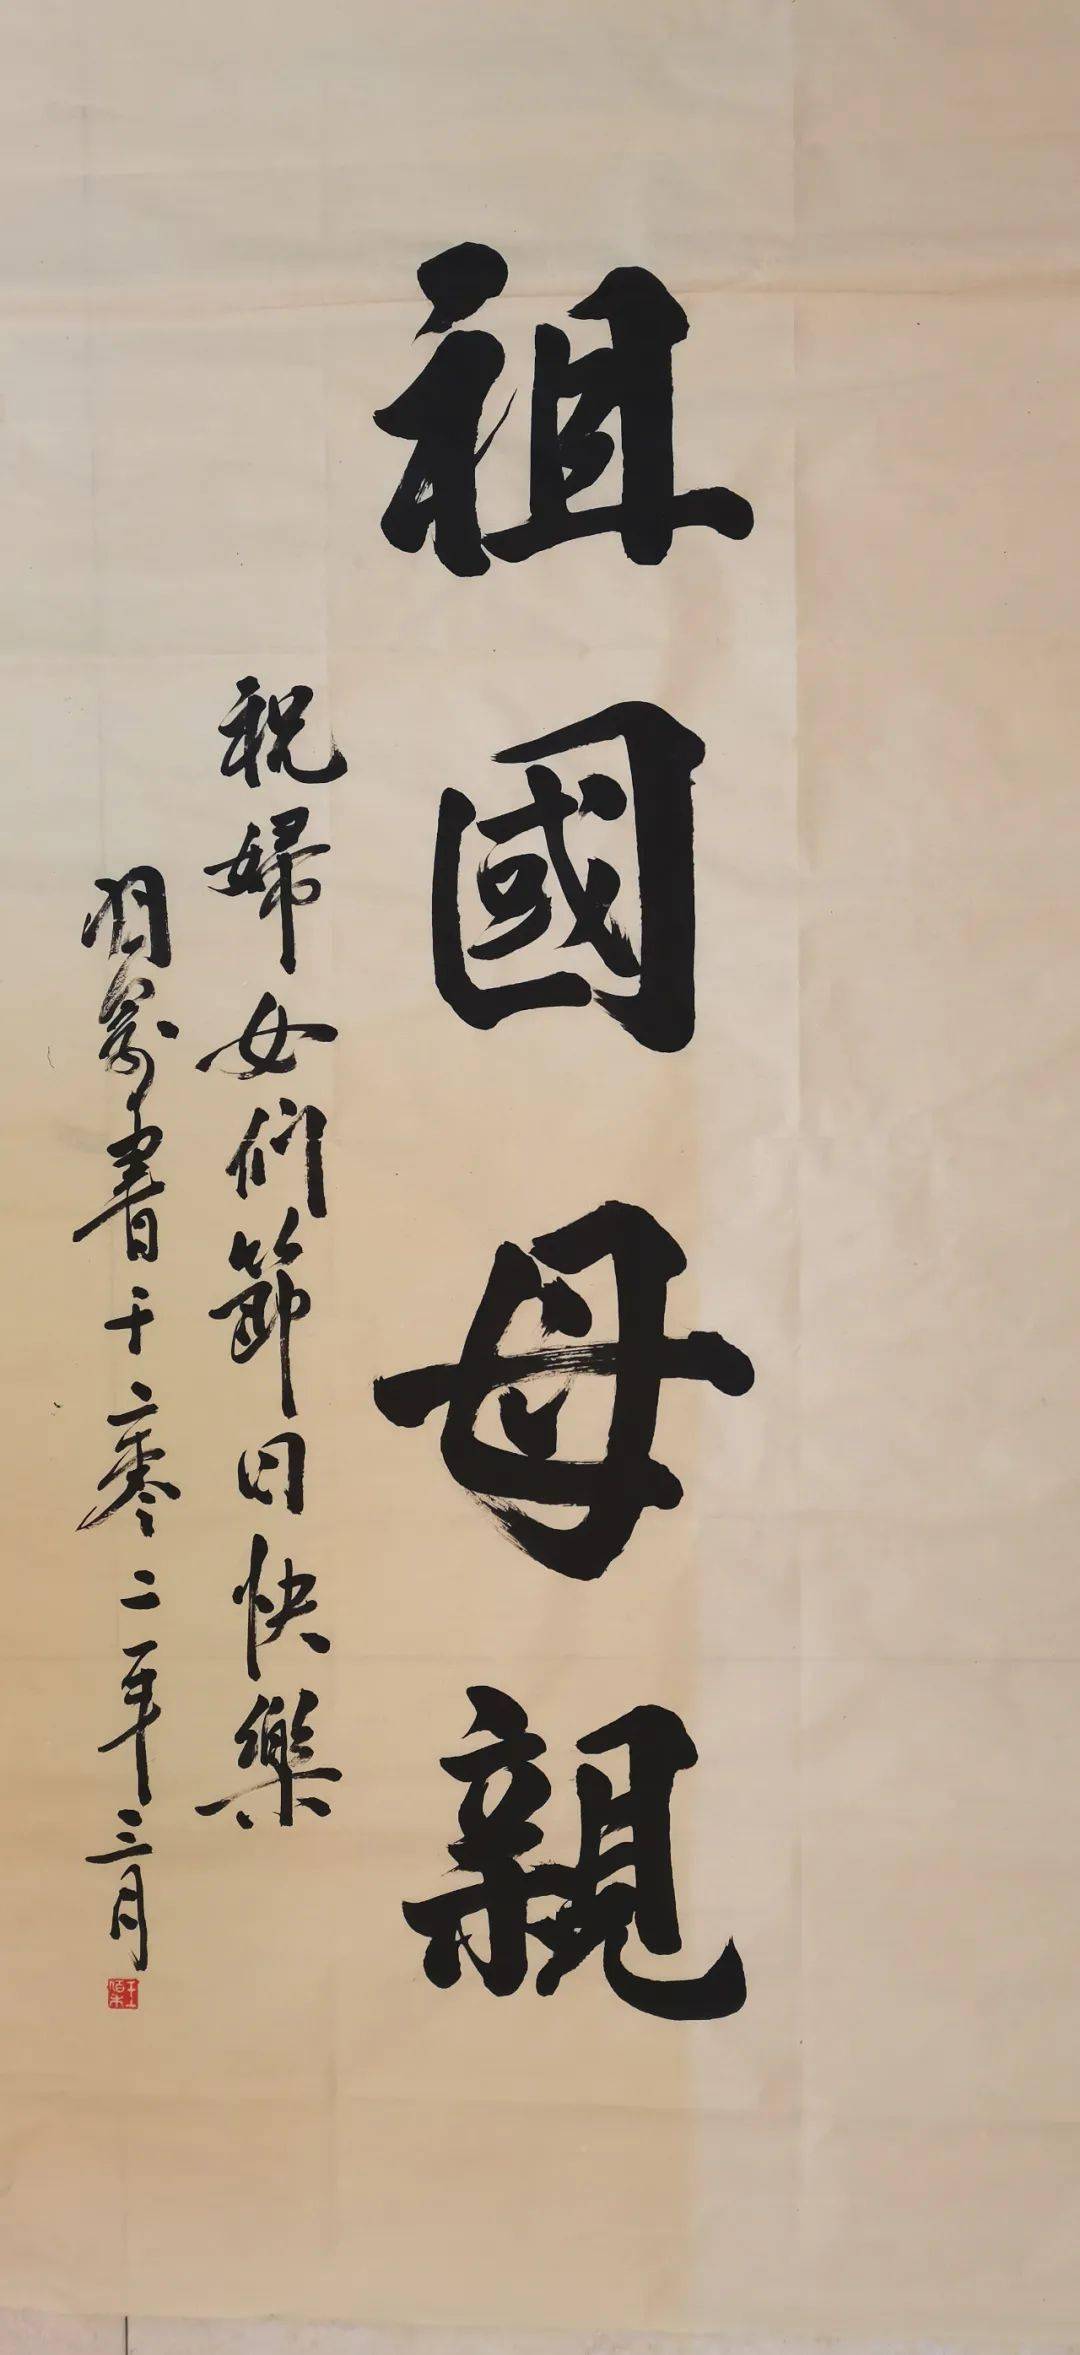 祖國母親
祝婦女們節日快樂
書于二零二一年三月